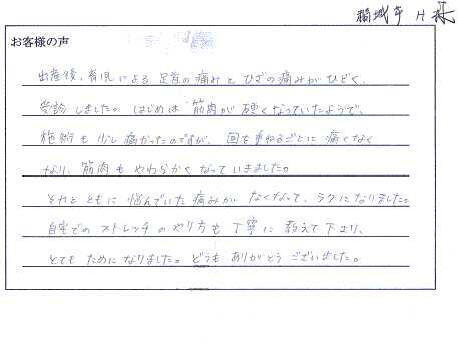 稲城市 H様
お客様の声
出産後、育児による足首の痛みとひざの痛みがひどく、
受診しました。はじめは筋肉が硬くなっていたようで、
施術も少し痛かったのですが、回を重ねるごとに痛くなく
なり、筋肉もやわらかくなっていきました。
それとともに悩んでいた痛みがなくなって、ラクになりました。
自宅でのストレッチのやり方も丁寧に教えて下さり、
とてもためになりました。どうもありがとうございました。